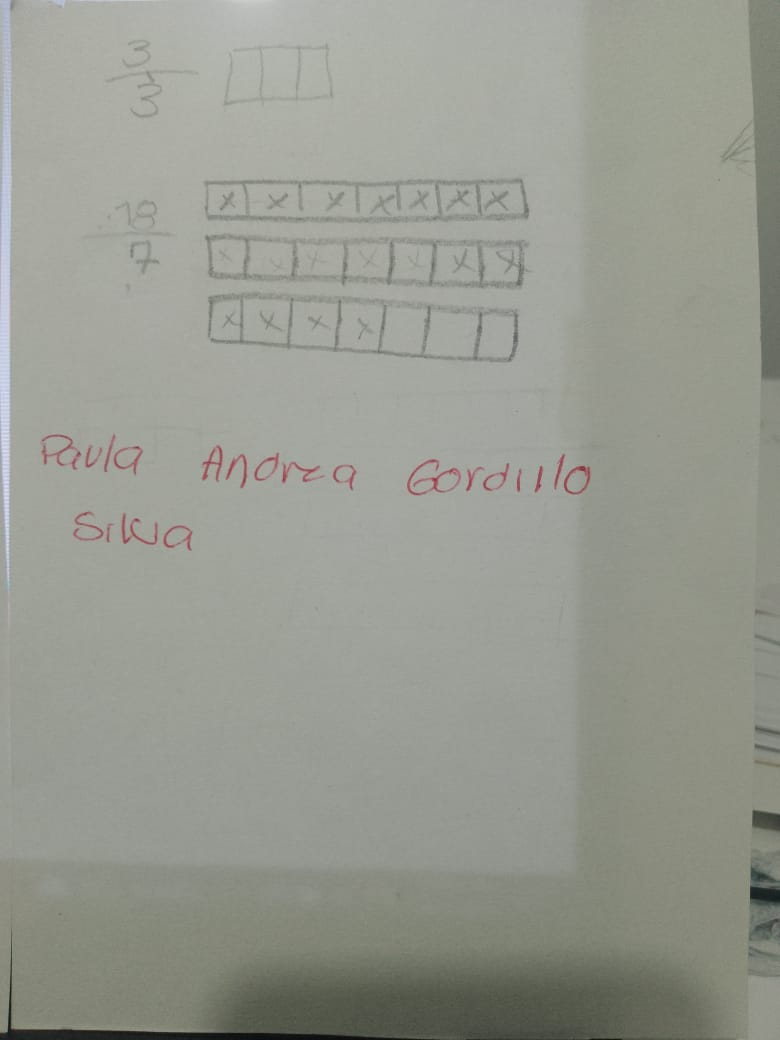 3
3
18
7
x x x x x x x
x x x x x x x
x x x x
Paula Andrea Gordillo
Silva